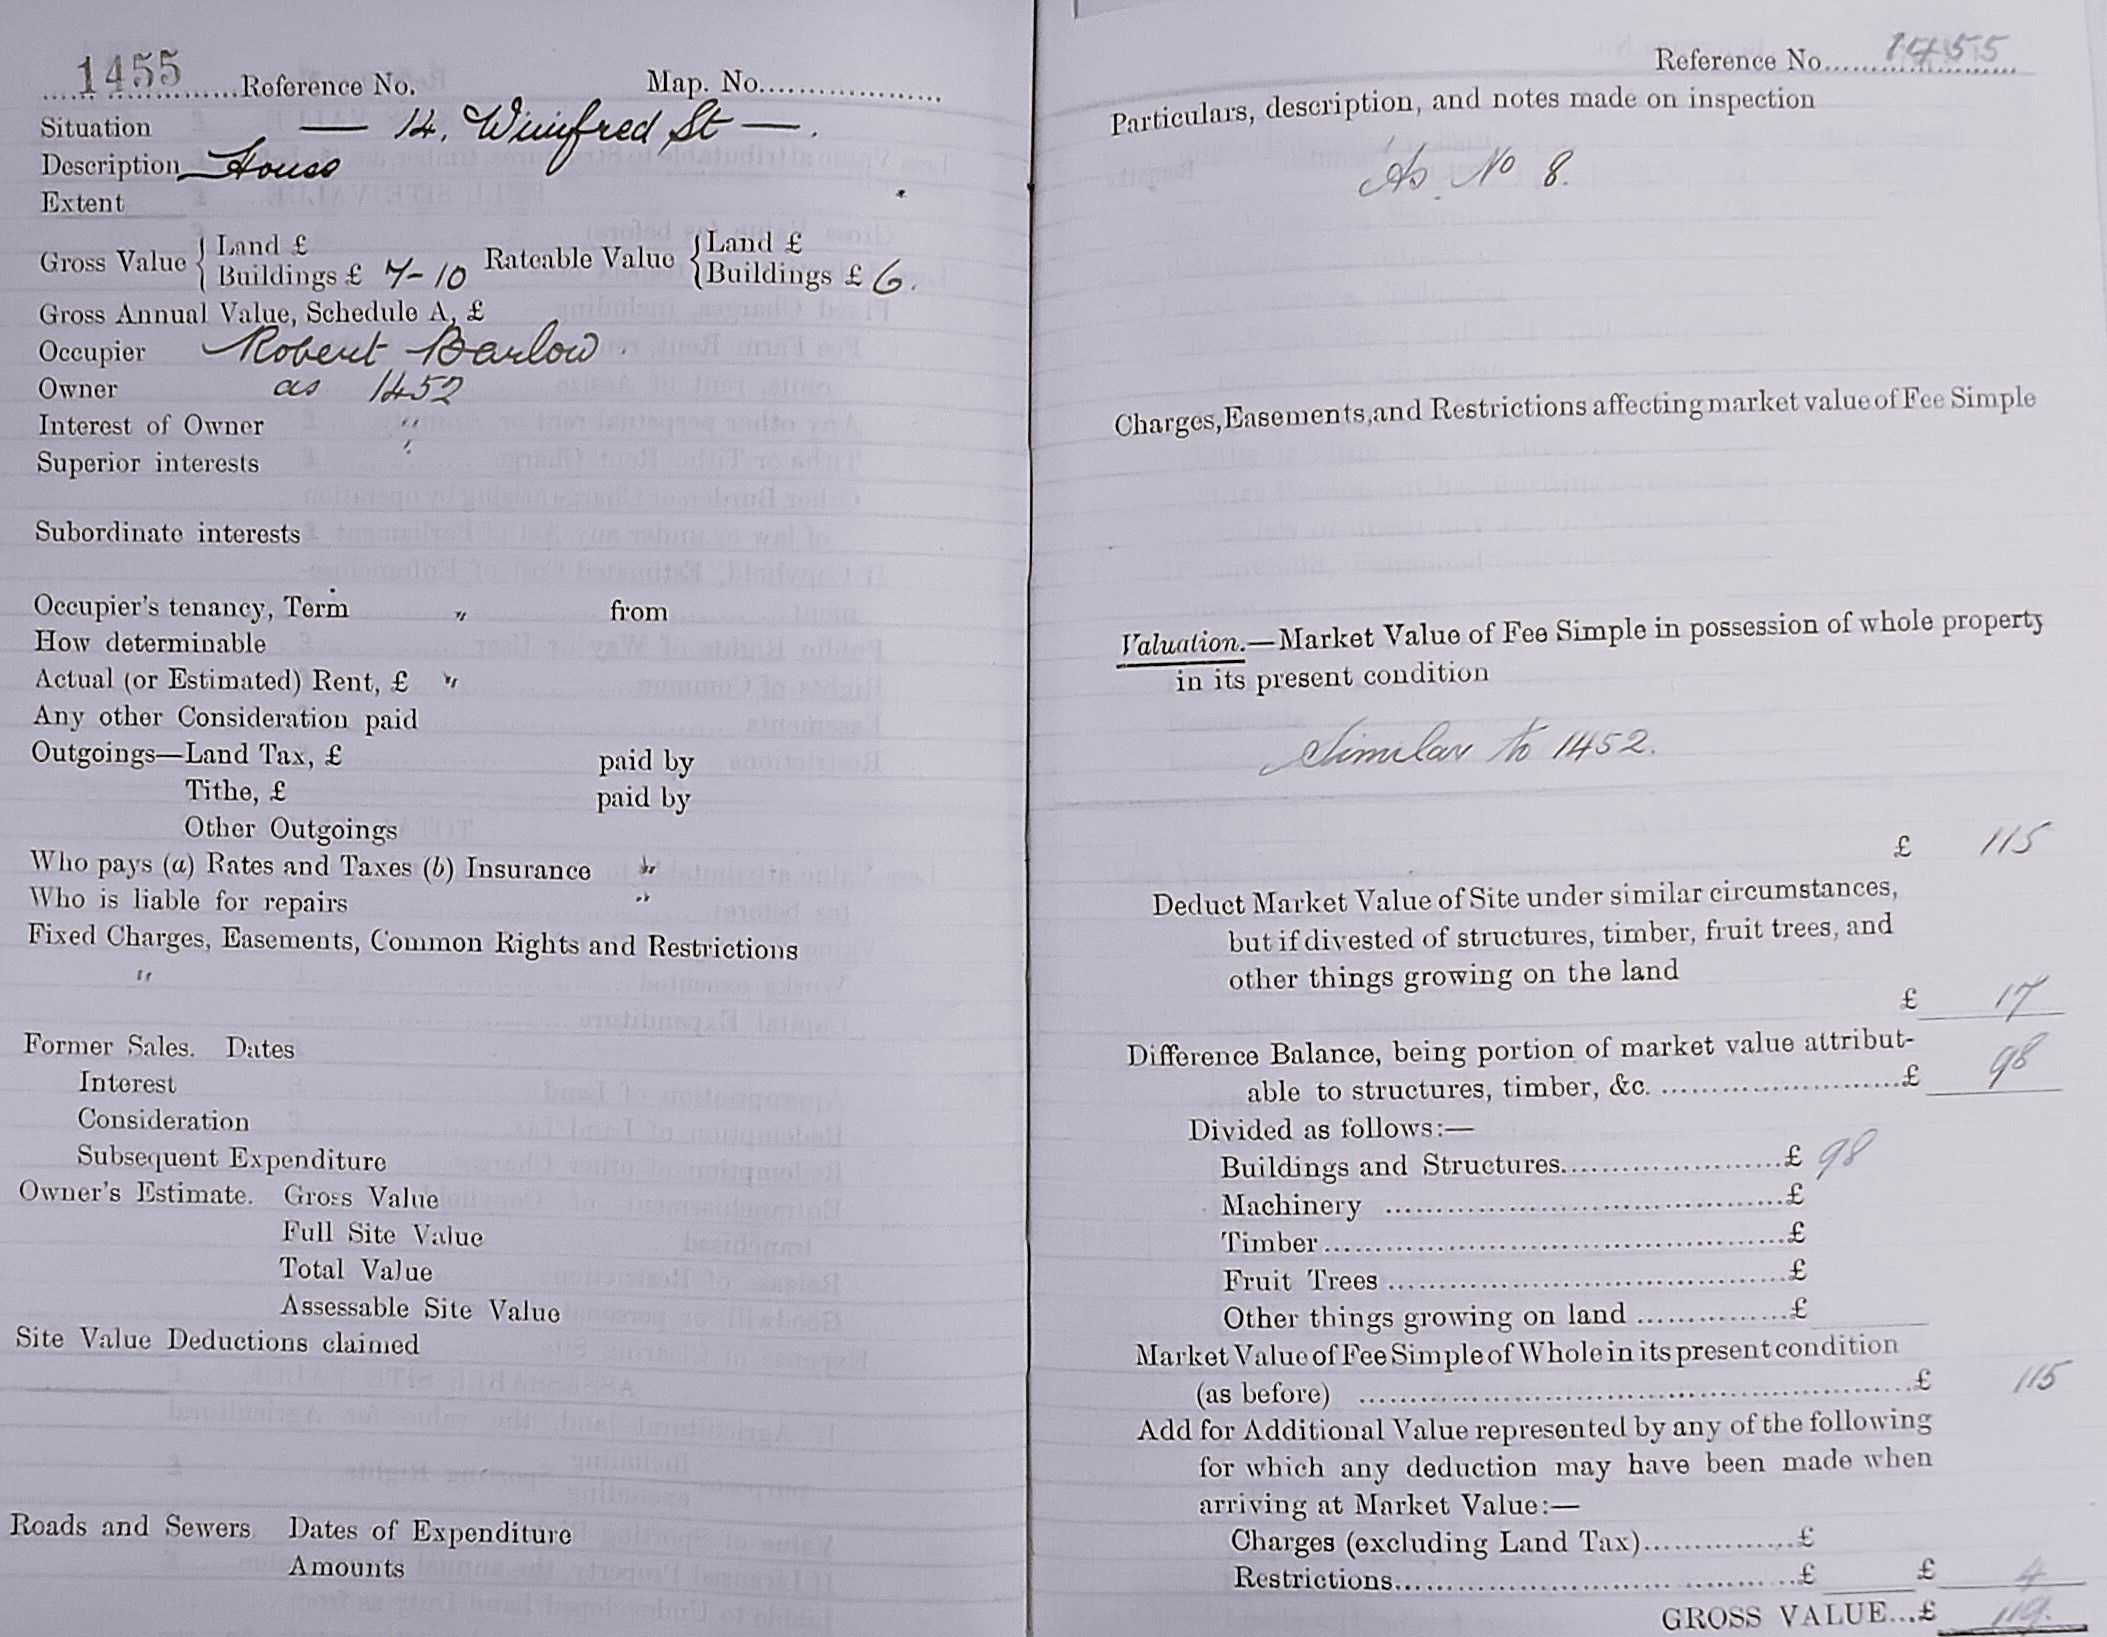 1455 Reference No. Map. No.
Situation — 14, Winifred St —.
Description House
Extent
Gross Value { Land £ Rateable Value { Land £
Buildings £ 7-10 Buildings £ 6.
Gross Annual Value, Schedule A, £
Occupier Robert Barlow.
Owner as 1452
Interest of Owner "
Superior interests "
Subordinate interests
Occupier's tenancy, Term " from
How determinable
Actual (or Estimated) Rent, £ "
Any other Consideration paid
Outgoings—Land Tax, £ paid by
Tithe, £ paid by
Other Outgoings
Who pays (a) Rates and Taxes (b) Insurance "
Who is liable for repairs "
Fixed Charges, Easements, Common Rights and Restrictions
"
Former Sales. Dates
Interest
Consideration
Subsequent Expenditure
Owner's Estimate. Gross Value
Full Site Value
Total Value
Assessable Site Value
Site Value Deductions claimed
Roads and Sewers. Dates of Expenditure
Amounts
Reference No. 1455
Particulars, description, and notes made on inspection
As No 8.
Charges, Easements, and Restrictions affecting market value of Fee Simple
Valuation.—Market Value of Fee Simple in possession of whole property
in its present condition
Similar to 1452.
£ 115
Deduct Market Value of Site under similar circumstances,
but if divested of structures, timber, fruit trees, and
other things growing on the land
£ 17
Difference Balance, being portion of market value attribut-
able to structures, timber, &c. £ 98
Divided as follows:—
Buildings and Structures £ 98
Machinery £
Timber £
Fruit Trees £
Other things growing on land £
Market Value of Fee Simple of Whole in its present condition
(as before) £ 115
Add for Additional Value represented by any of the following
for which any deduction may have been made when
arriving at Market Value:—
Charges (excluding Land Tax) £
Restrictions £ £ 4
GROSS VALUE...£ 119.